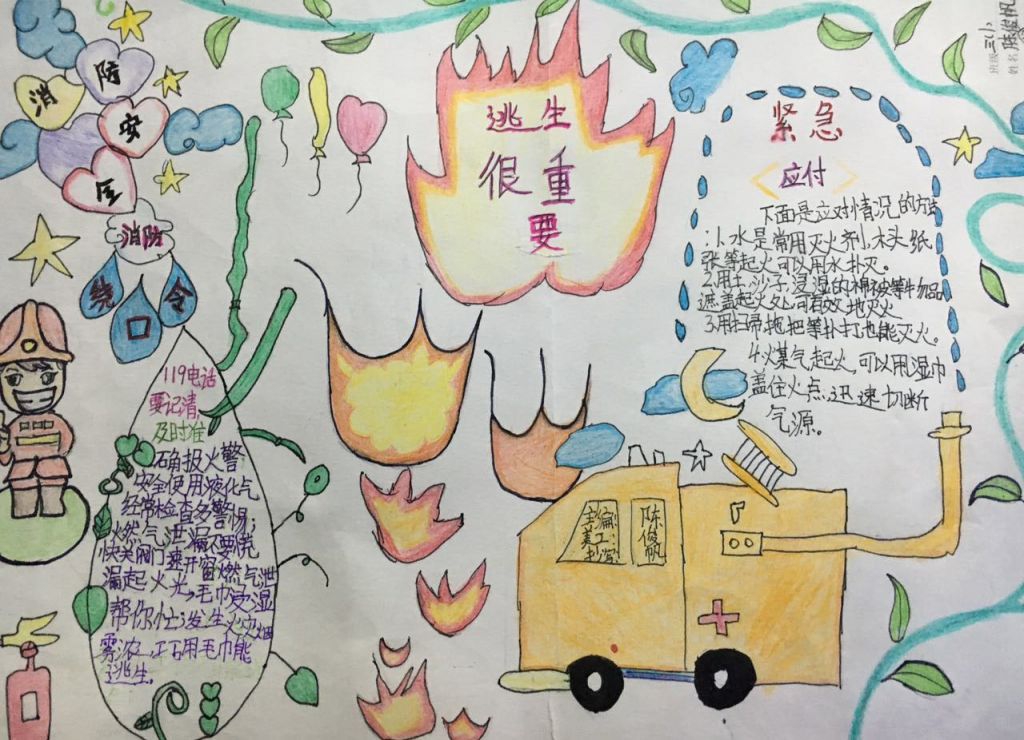 消防
安全
消防
口令
119电话
要记清,
及时准
确报火警
安全使用液化气
经常检查多警惕;
燃气泄漏不要慌
快关阀门速开窗燃气泄
漏起火光,毛巾受湿
帮你忙;发生火灾烟
雾浓,正石用毛巾能
逃生。
逃生
很重
要
班级 三(1)
姓名 陈俊帆
紧急
〈应付〉
下面是应对情况的方法
:1.水是常用灭火剂,木头纸
张等起火可以用水扑灭。
2.用土、沙子、浸湿的棉被等物品
遮盖起火处,可有效地灭火
3.用扫帚拖把等扑打,也能灭火。
4.火煤气起火,可以用湿巾
盖住火点,迅速切断
气源。
主编:
美工:
抄写
陈俊帆